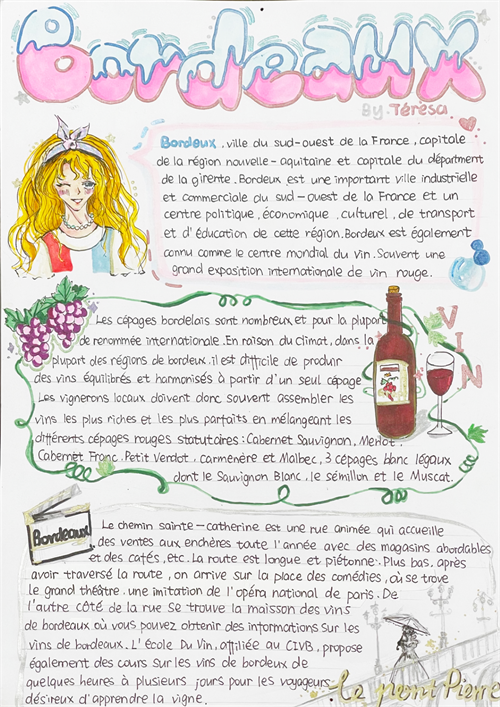 Bordeaux
By Térésa
Bordeux, ville du sud-ouest de la France, capitale
de la région nouvelle-aquitaine et capitale du département
de la girente. Bordeux est une important ville industrielle
et commerciale du sud-ouest de la France et un
centre politique, économique, culturel, de transport
et d'éducation de cette région. Bordeux est également
connu comme le centre mondial du vin. Souvent une
grand exposition internationale de vin rouge.
Les cépages bordelais sont nombreux et pour la plupart
de renommée internationale. En raison du climat, dans la
plupart des régions de bordeux. il est difficile de produir
des vins équilibrés et harmonisés à partir d'un seul cépage
Les vignerons locaux doivent donc souvent assembler les
vins les plus riches et les plus parfaits en mélangeant les
différents cépages rouges statutaires: Cabernet Sauvignon, Merlot,
Cabernet Franc. Petit Verdot, carmenère et Malbec, 3 cépages blanc légaux
dont le Sauvignon Blanc, le sémillon et le Muscat.
VIN
Bordeaux
Le chemin sainte-catherine est une rue animée qui accueille
des ventes aux enchères toute l'année avec des magasins abordables
et des cafés, etc. La route est longue et piétonne. Plus bas, après
avoir traversé la route, on arrive sur la place des comédies, où se trove
le grand théâtre. une imitation de l'opéra national de paris. De
l'autre côté de la rue se trouve la maisson des vins
de bordeaux où vous pouvez obtenir des informations sur les
vins de bordeaux. L'école Du Vin, affiliée au CIVB, propose
également des cours sur les vins de bordeux de
quelques heures à plusieurs jours pour les voyageurs
désireux d'apprendre la vigne.
Le pont Pierre